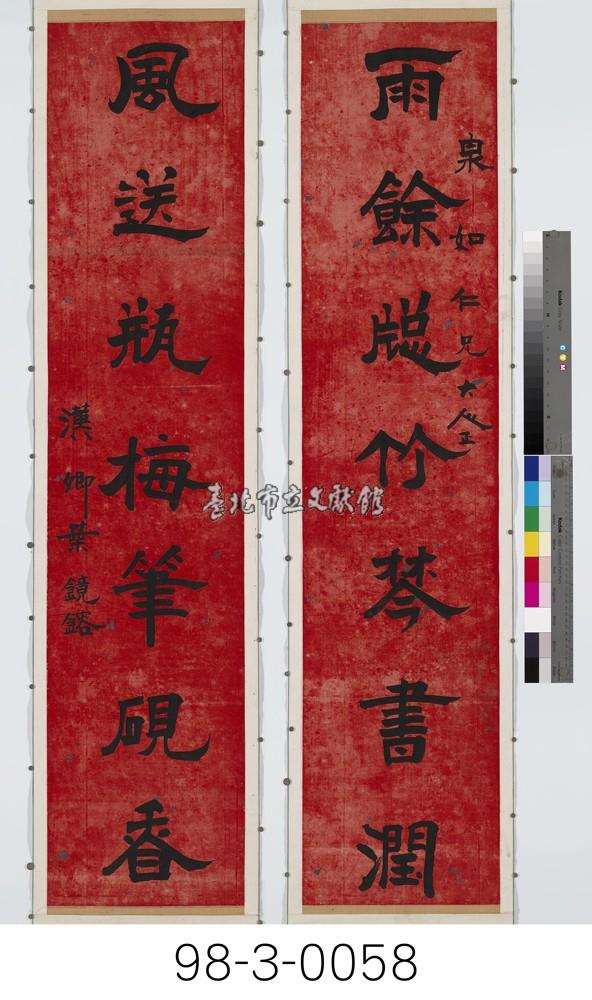 雨餘牕竹琴書潤
泉如仁兄大人正
風送瓶梅筆硯香
漢卿葉鏡鎔
臺北市立文獻館
98-3-0058